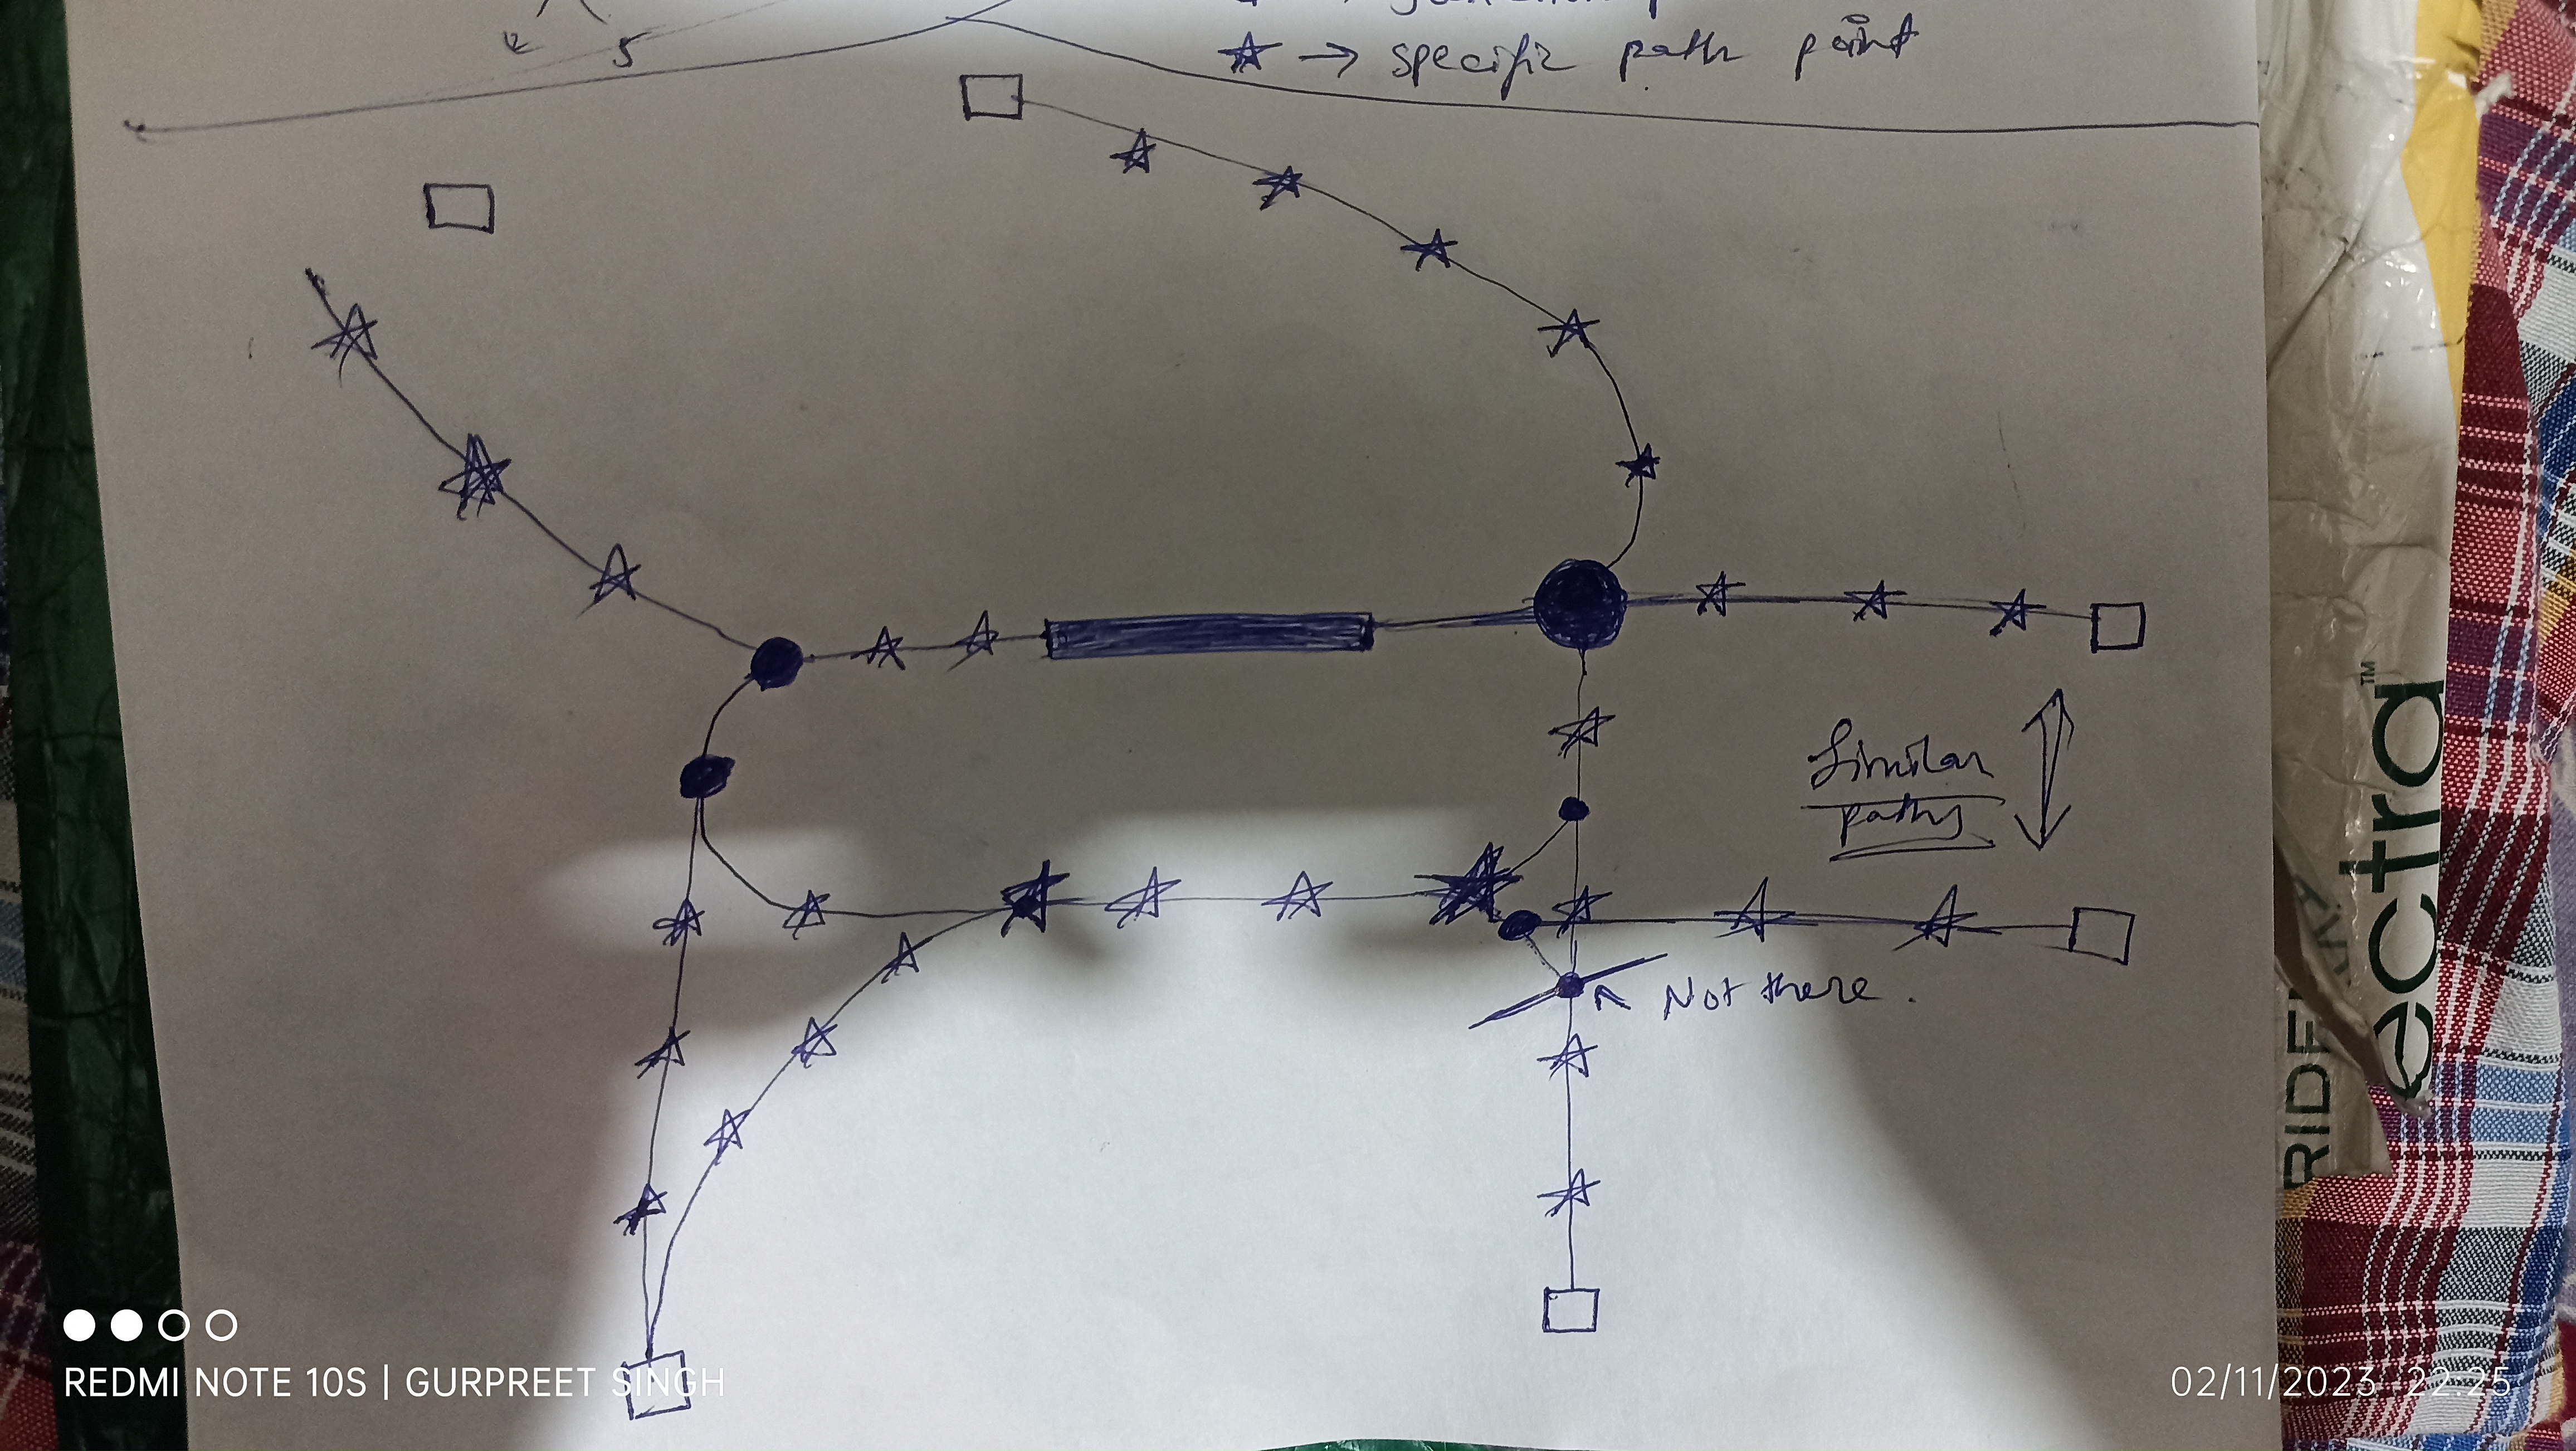 5
☆ → specific path point
Similar
paths
Not there.
ectra™
RIDE
REDMI NOTE 10S | GURPREET SINGH
02/11/2023 22:25